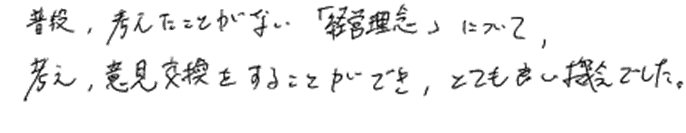 普段，考えたことがない「経営理念」について，
考え，意見交換をすることができ，とても良い機会でした。